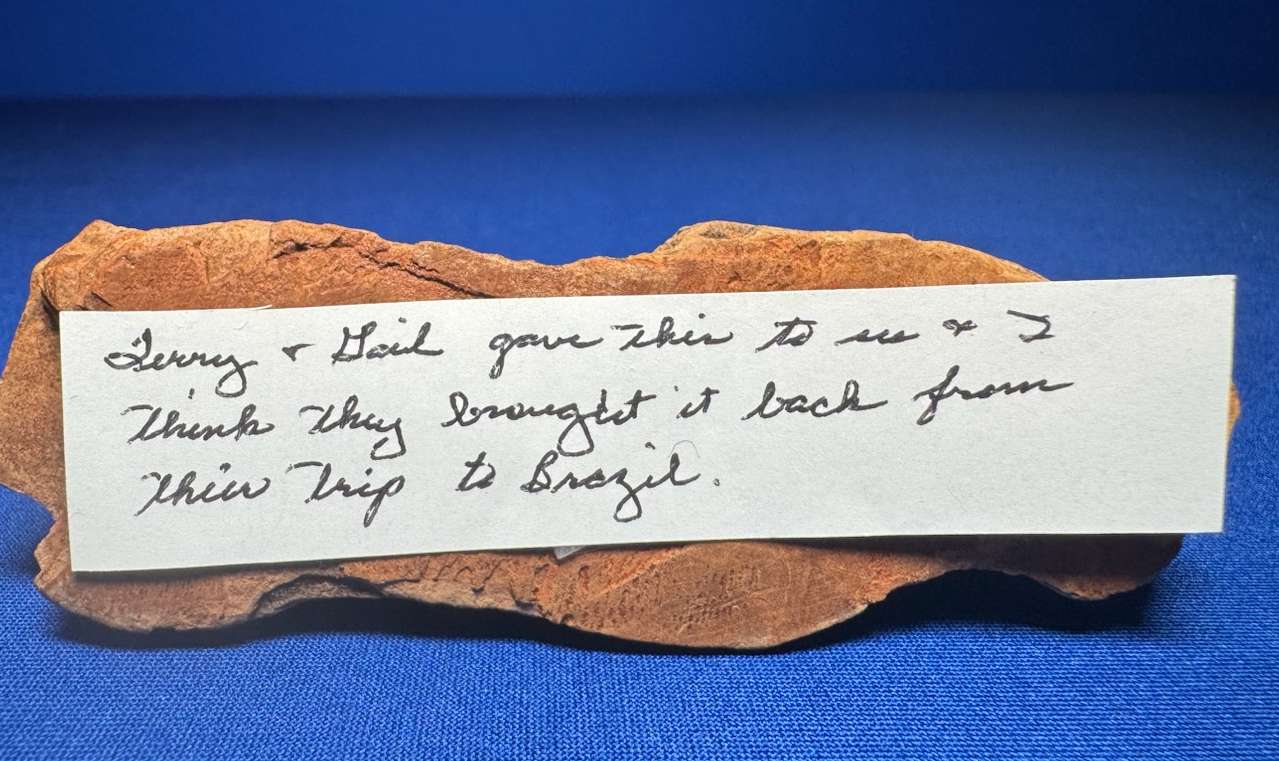 Terry + Gail gave this to us & I
think they brought it back from
thier trip to Brazil.